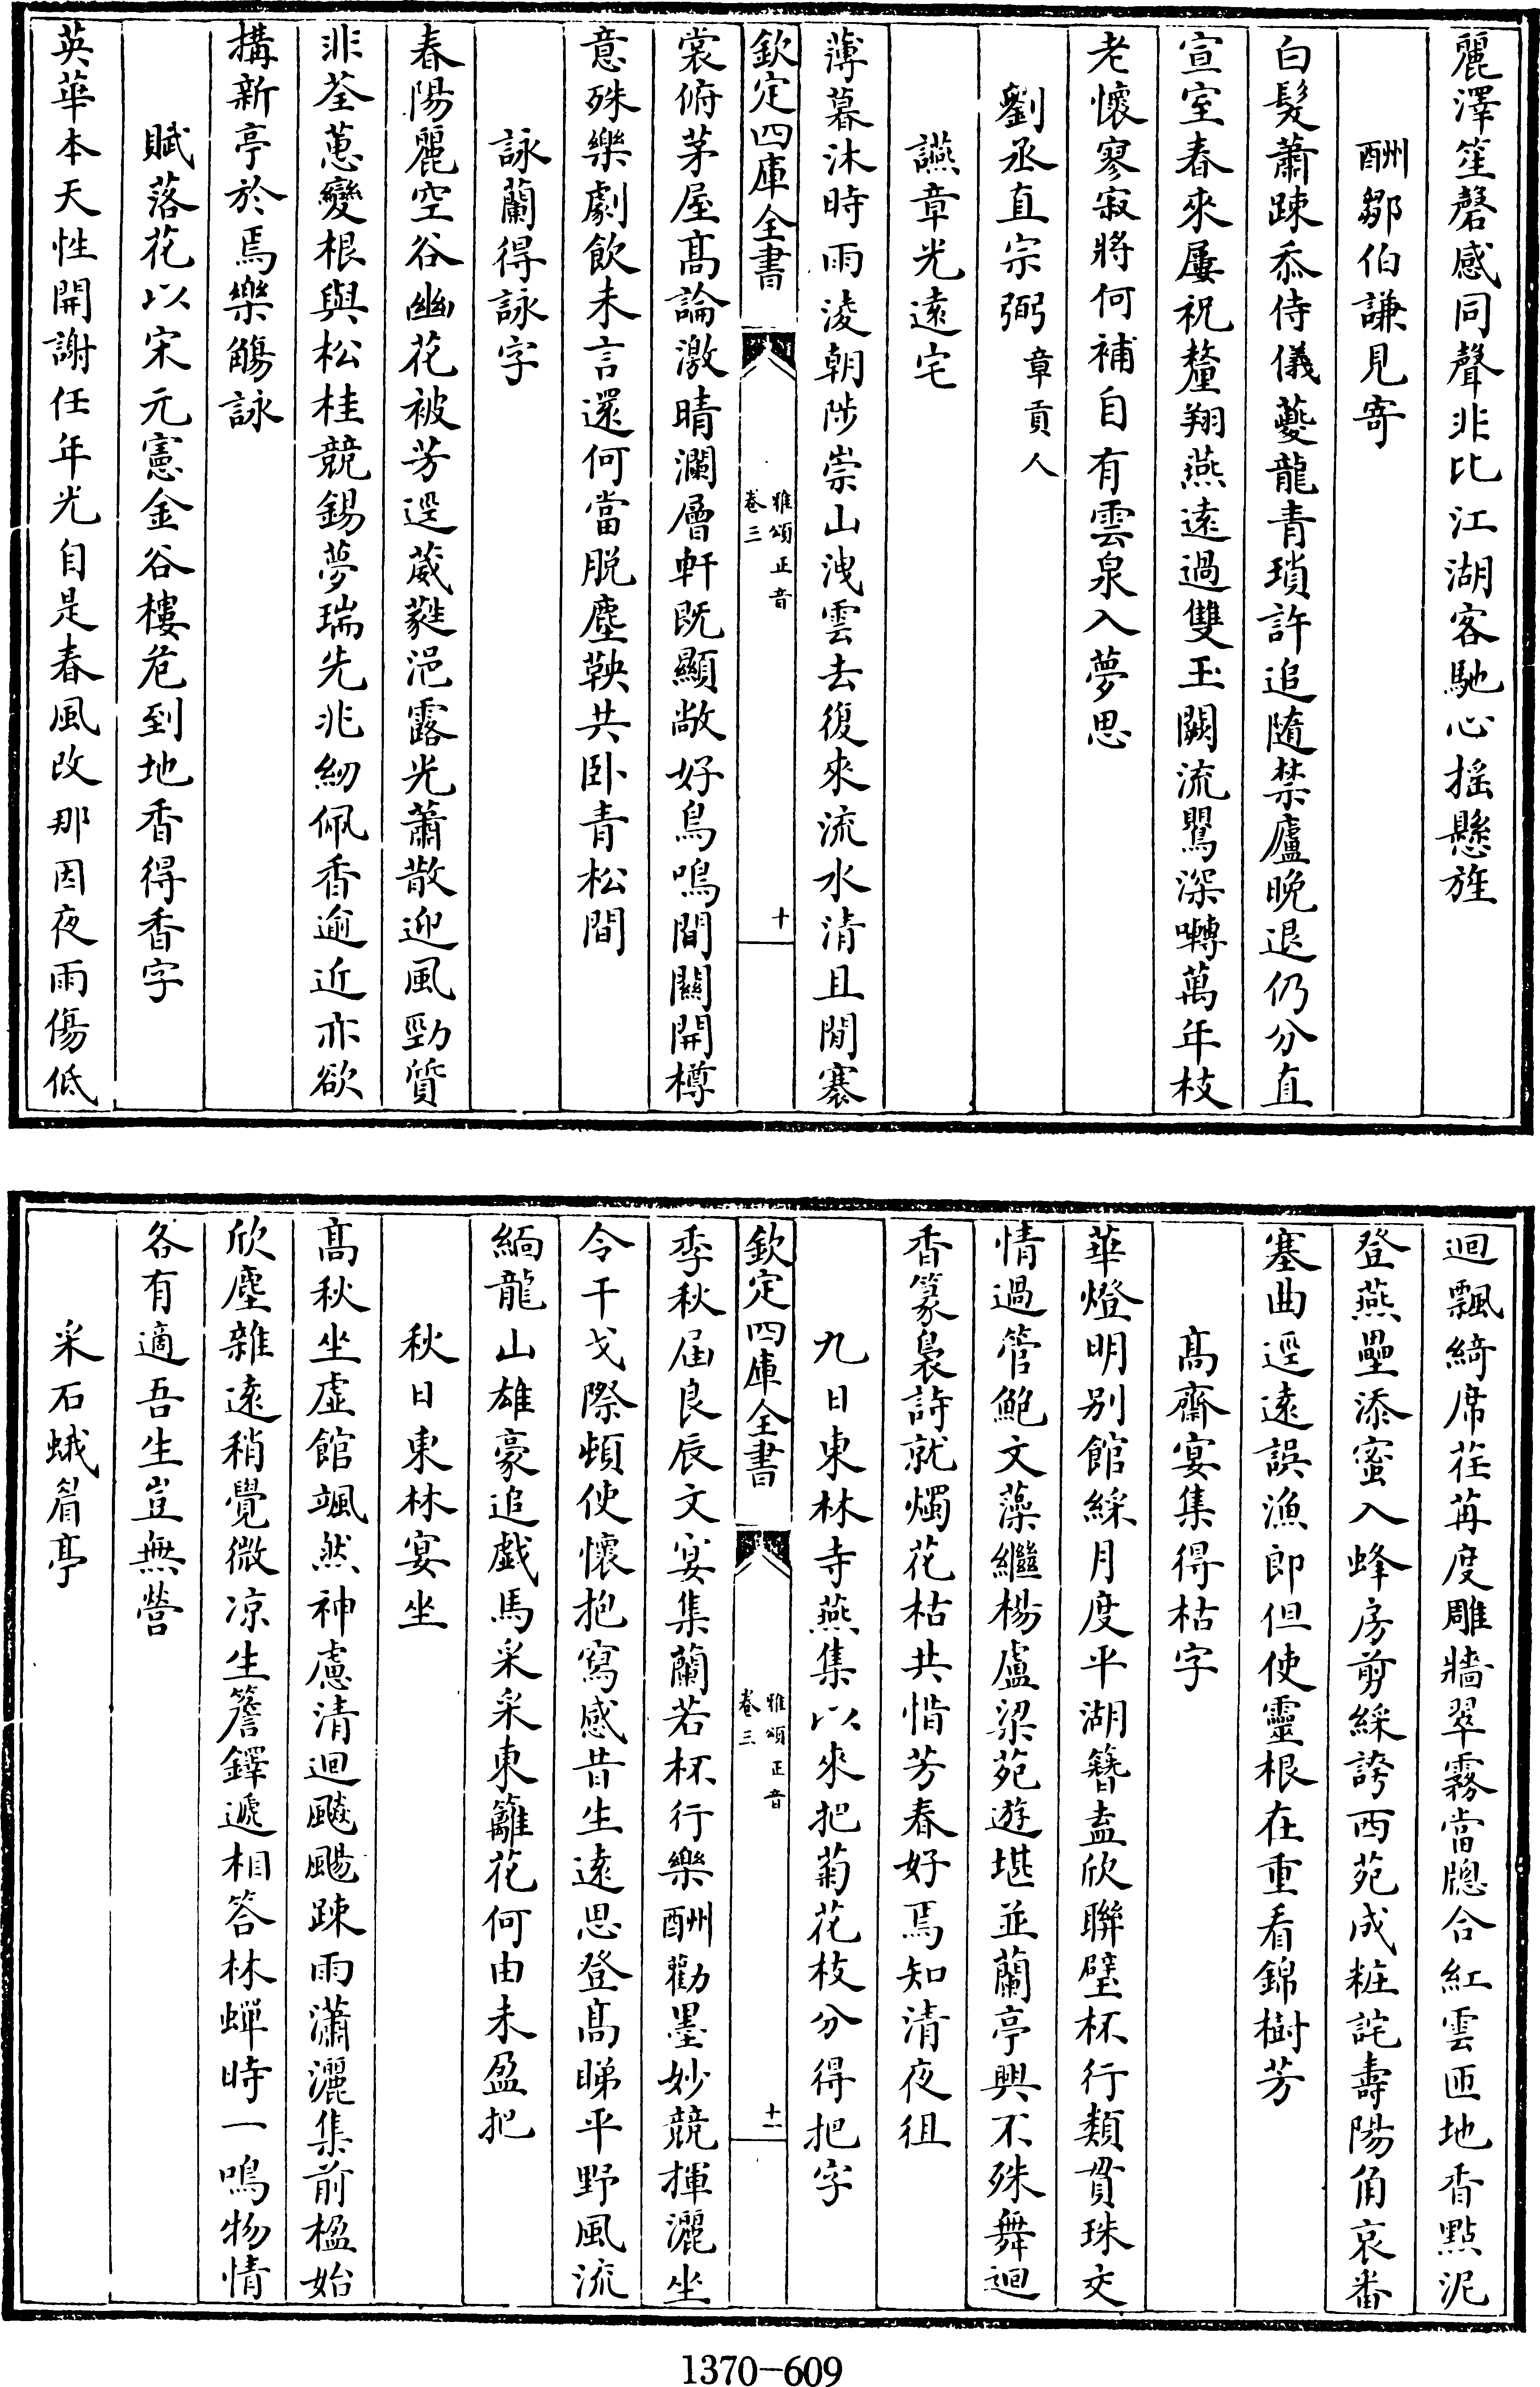 麗澤笙磬感同聲非比江湖客馳心揺懸旌
酬鄒伯謙見寄
白髮蕭踈忝侍儀夔龍青瑣許追隨禁廬晚退仍分直
宣室春來屢祝釐翔燕遠過雙玉闕流鸎深囀萬年枝
老懷寥寂將何補自有雲泉入夢思
劉丞直宗弼章貢人
讌章光遠宅
薄暮沐時雨淩朝陟崇山洩雲去復來流水清且閒褰
欽定四庫全書
雅頌正音
卷三
十
裳俯茅屋髙論激晴瀾層軒既顯敞好鳥鳴間關開樽
意殊樂劇飲未言還何當脱塵鞅共卧青松間
詠蘭得詠字
春陽麗空谷幽花被芳逕葳蕤浥露光蕭散迎風勁質
非荃蕙變根與松桂競錫夢瑞先兆紉佩香逾近亦欲
搆新亭於焉樂觴詠
賦落花以宋元憲金谷樓危到地香得香字
英華本天性開謝任年光自是春風改那因夜雨傷低
迴飄綺席荏苒度雕牆翠霧當牕合紅雲匝地香點泥
登燕壘添蜜入蜂房剪綵誇西苑成粧詫壽陽角哀番
塞曲逕遠誤漁郎但使靈根在重看錦樹芳
髙齋宴集得枯字
華燈明别館綵月度平湖簪盍欣聯璧杯行類貫珠交
情過管鮑文藻繼楊盧梁苑遊堪並蘭亭興不殊舞迴
香篆裊詩就燭花枯共惜芳春好焉知清夜徂
九日東林寺燕集以來把菊花枝分得把字
欽定四庫全書
雅頌正音
卷三
十一
季秋届良辰文宴集蘭若杯行樂酬勸墨妙競揮灑坐
令干戈際頓使懷抱寫感昔生遠思登髙睇平野風流
緬龍山雄豪追戯馬采采東籬花何由未盈把
秋日東林宴坐
髙秋坐虚館颯然神慮清迴飈颺踈雨瀟灑集前楹始
欣塵雜遠稍覺微凉生簷鐸遞相答林蟬時一鳴物情
各有適吾生豈無營
采石蛾眉亭
1370-609